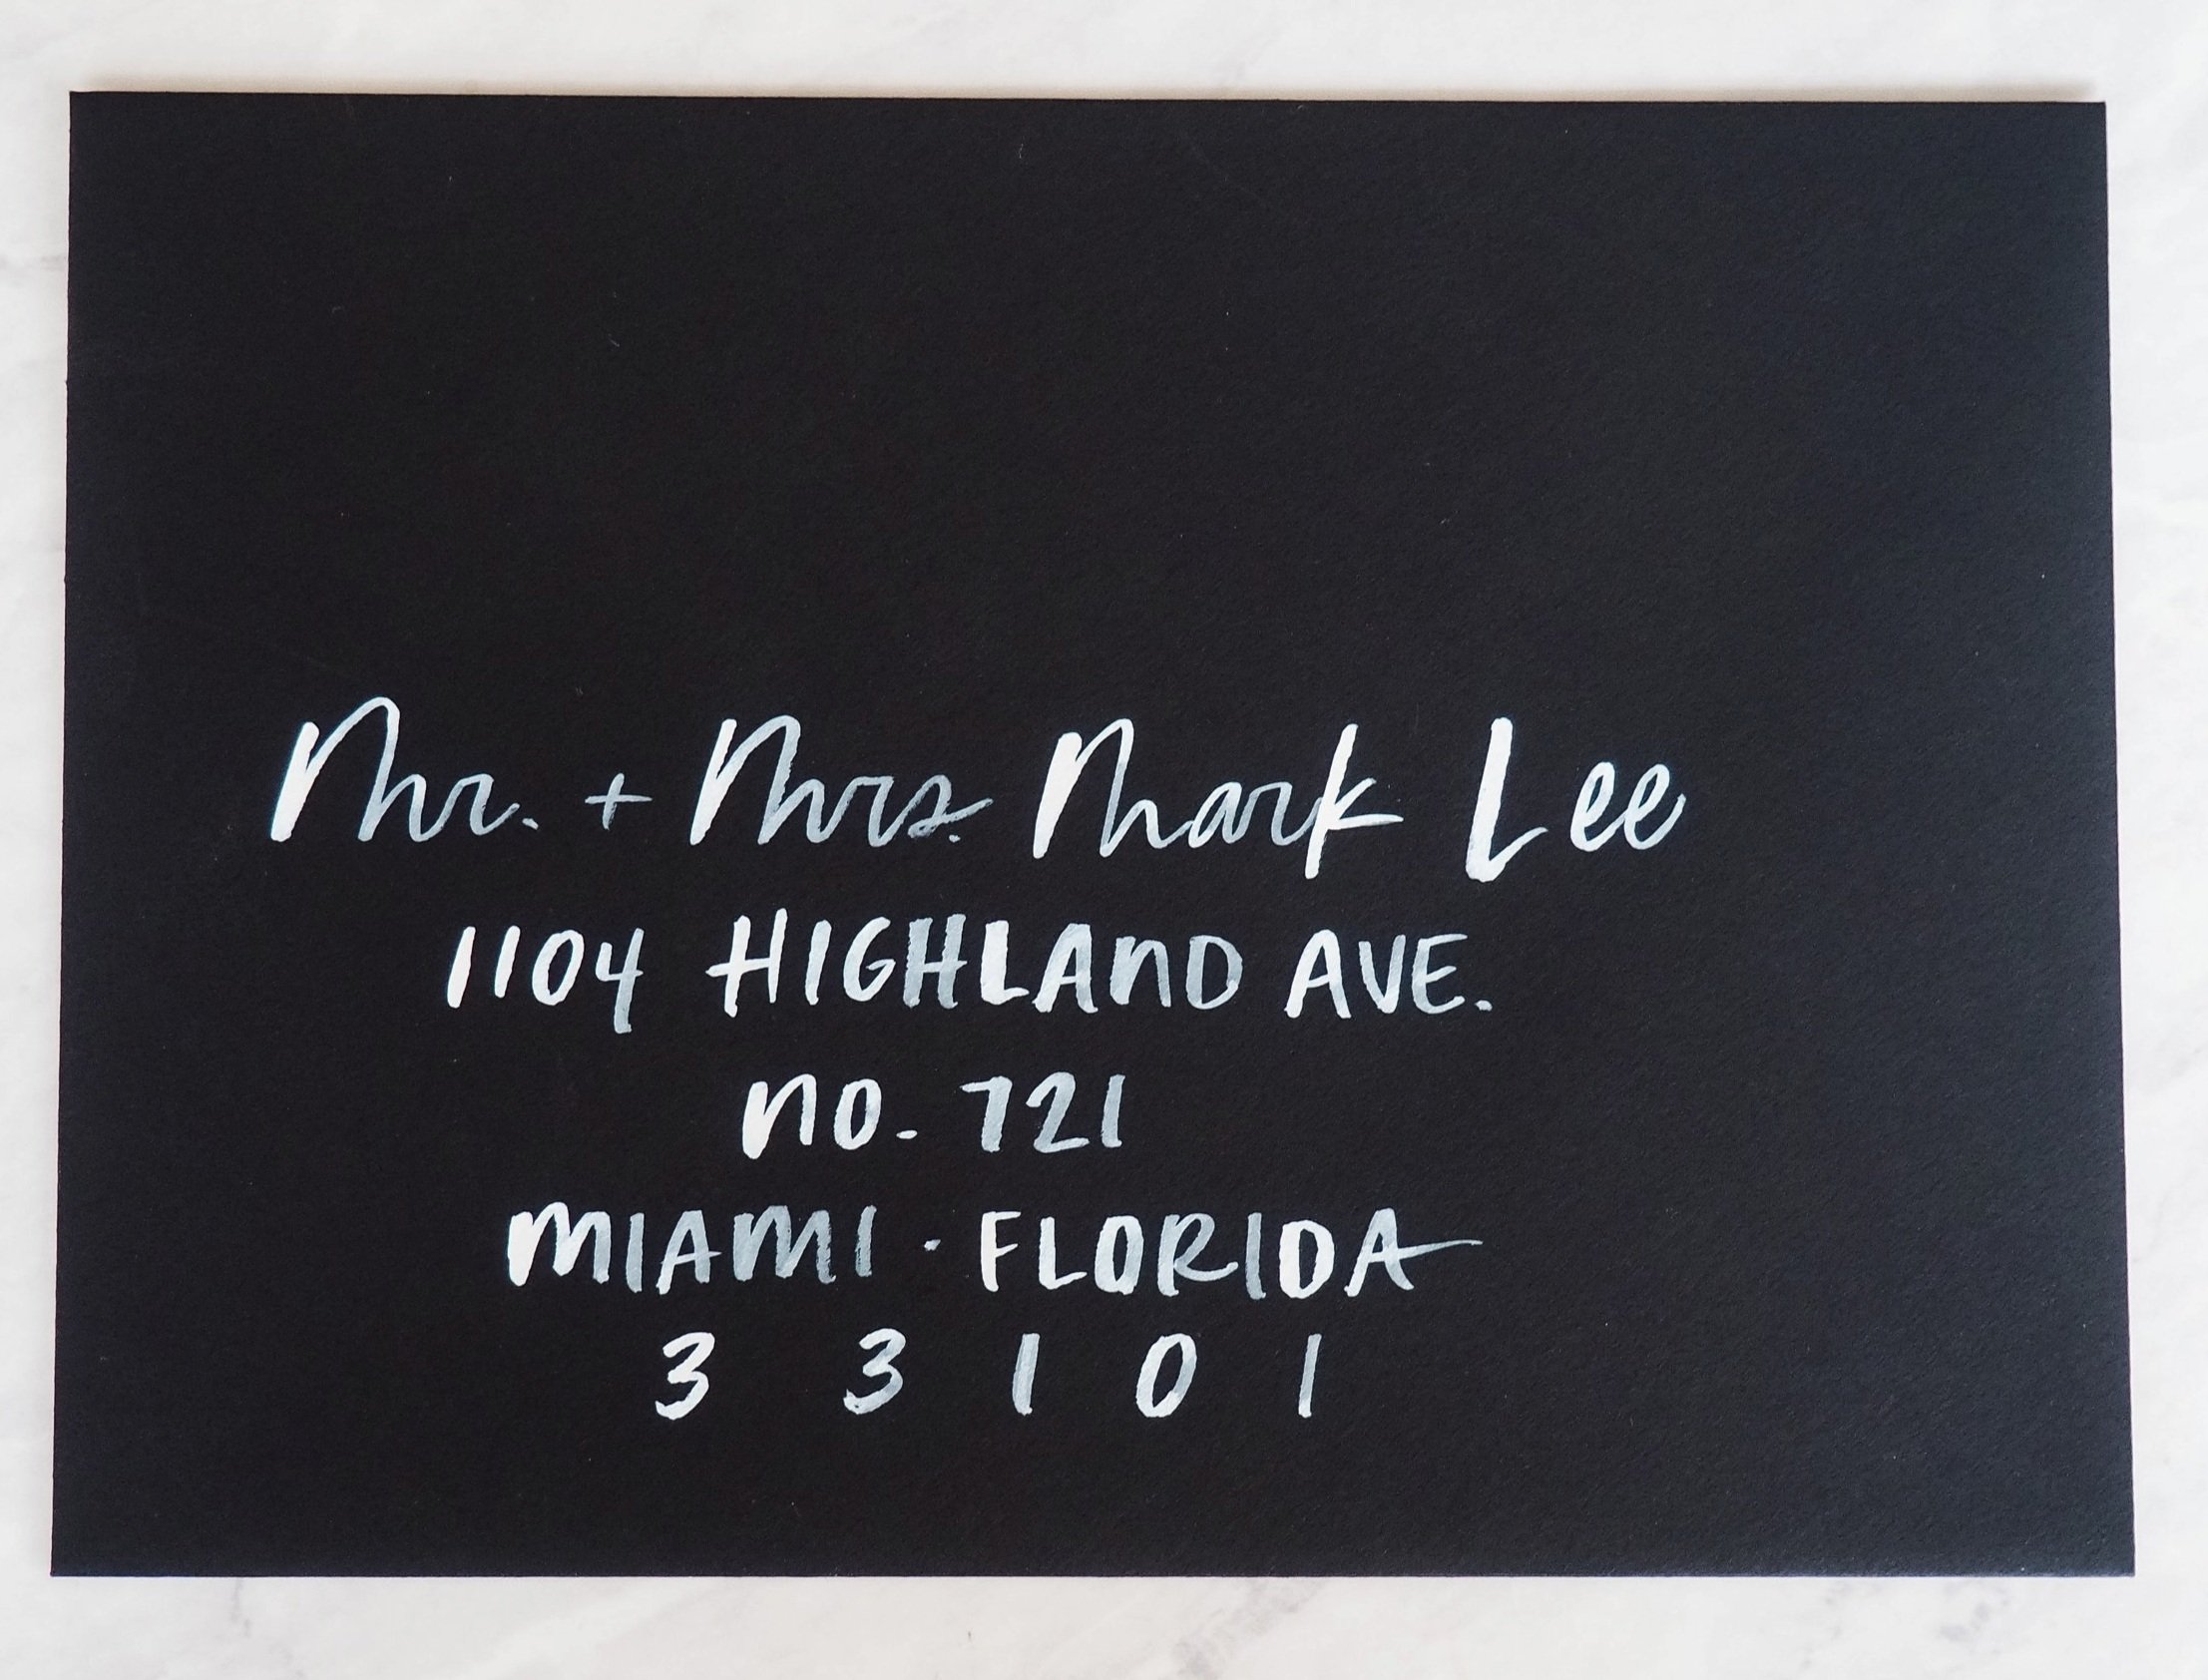 Mr. + Mrs. Mark Lee
1104 HIGHLAND AVE.
NO. 721
MIAMI · FLORIDA
3 3 1 0 1